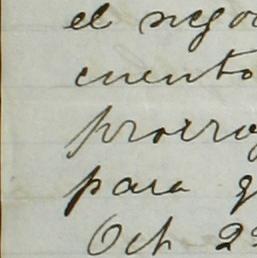 el nego
cuento
prorro
para q
Oct 29